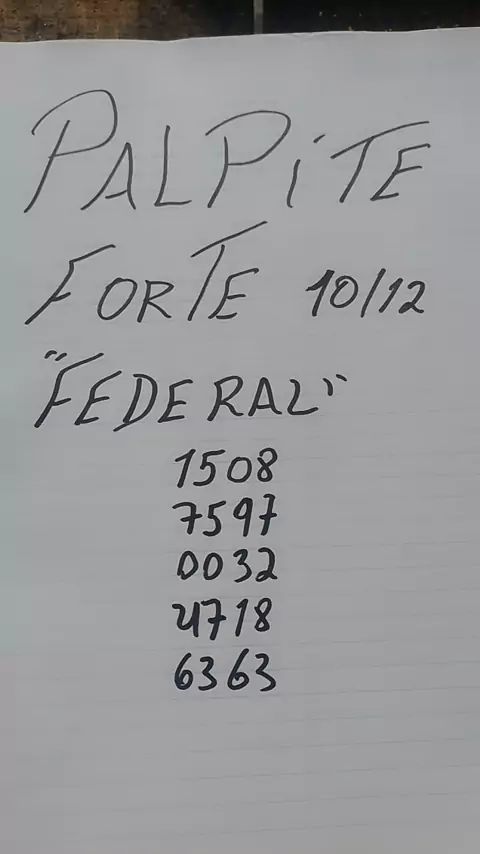 PALPiTE
FORTE 10/12
"FEDERAL"
1508
7597
0032
4718
6363